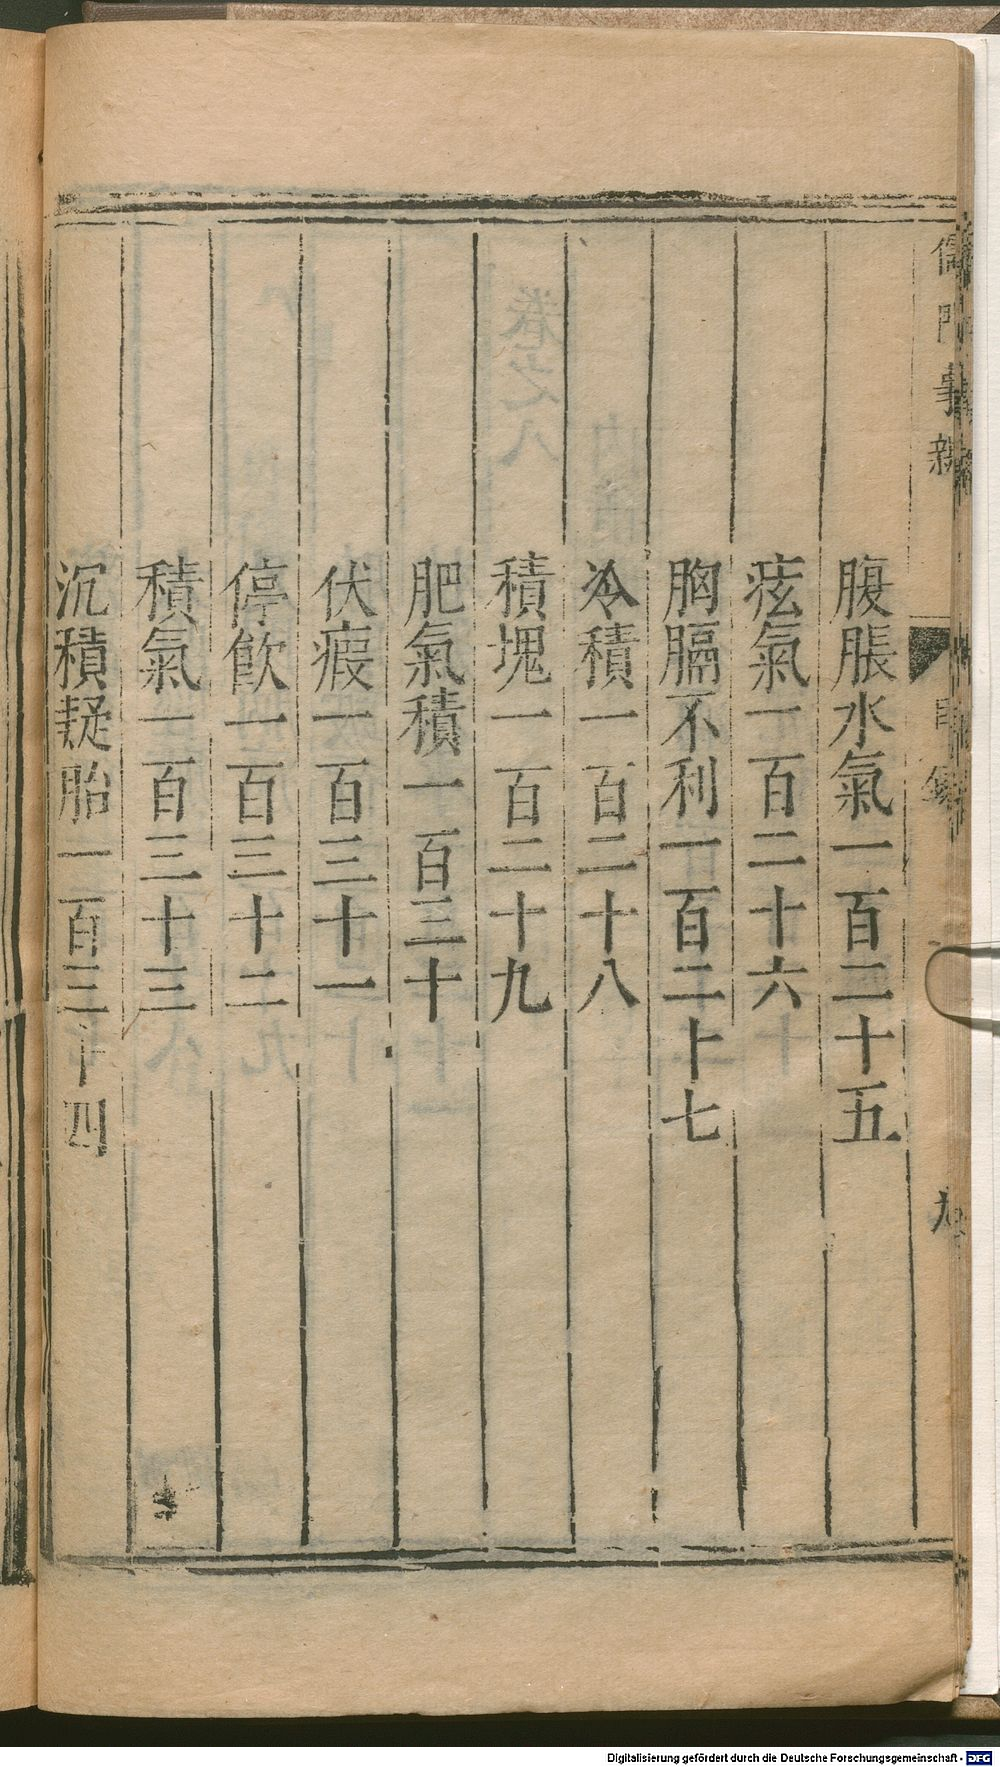 儒門事親
目錄
九
腹脹水氣一百二十五
痃氣一百二十六
胸膈不利一百二十七
冷積一百二十八
積塊一百二十九
肥氣積一百三十
伏瘕一百三十一
停飲一百三十二
積氣一百三十三
沉積疑胎一百三十四
Digitalisierung gefördert durch die Deutsche Forschungsgemeinschaft - DFG